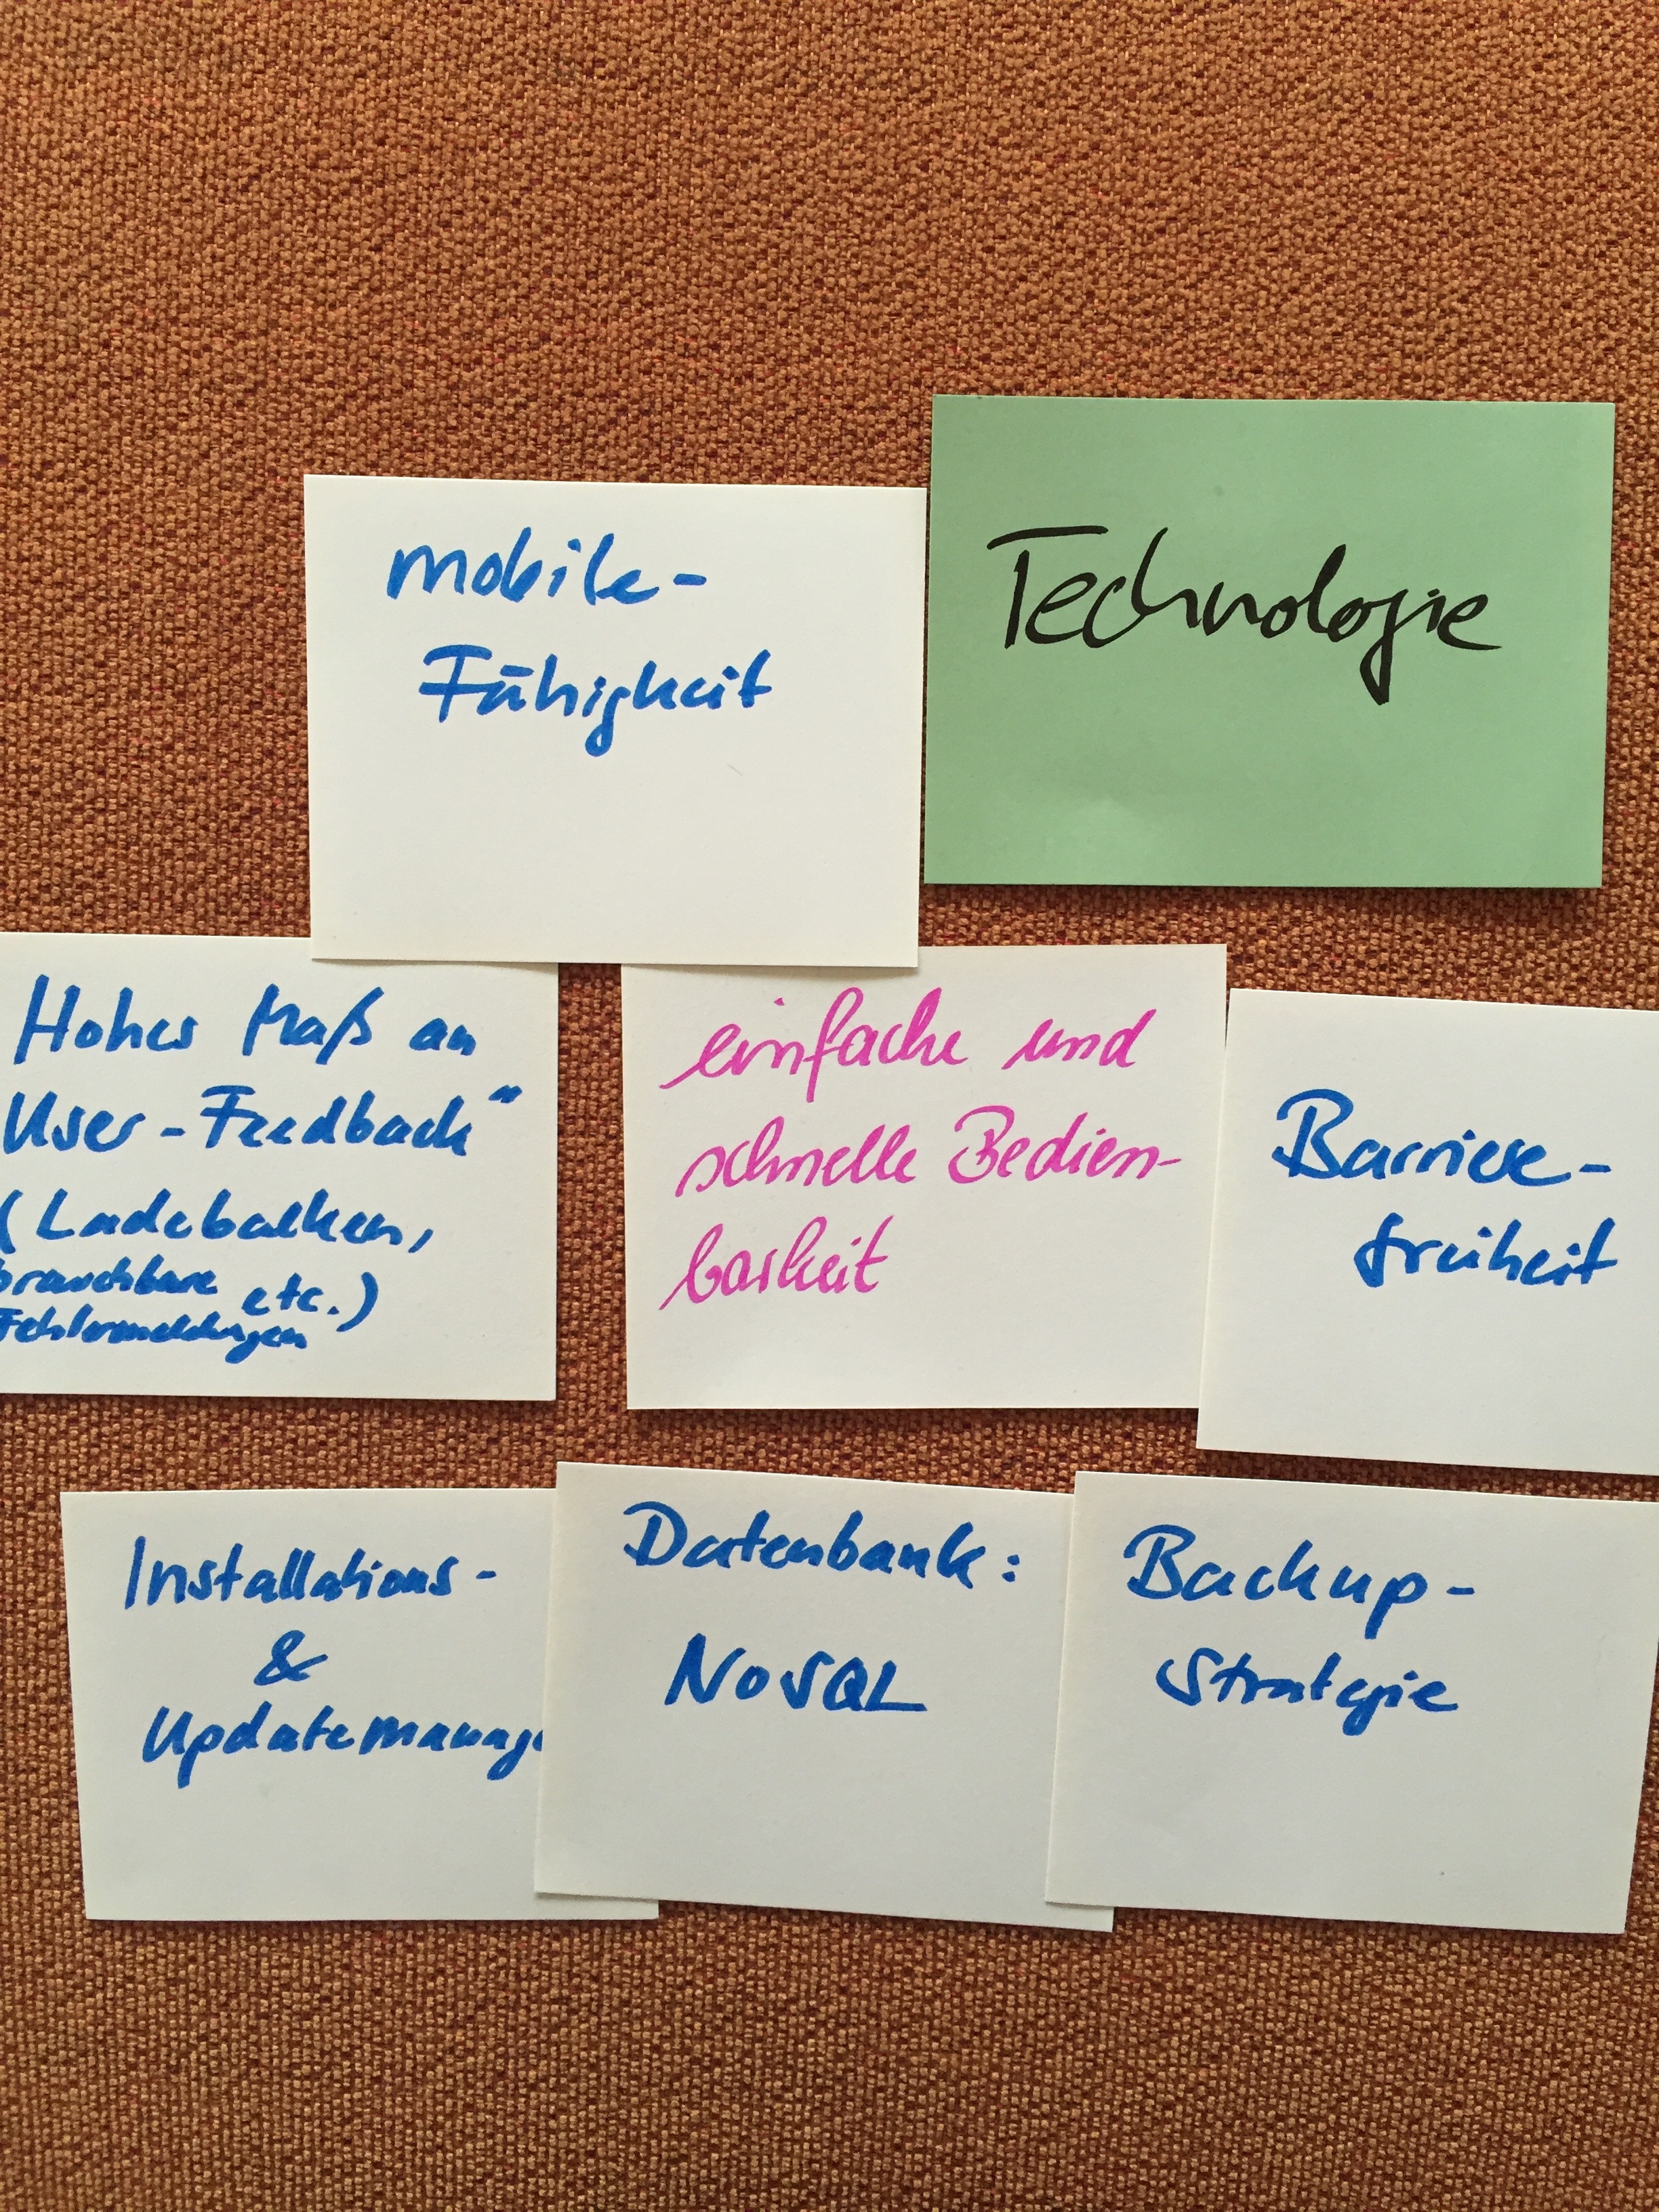 mobile-
Fähigkeit
Technologie
Hohes Maß an
User-Feedback"
(Ladebalken,
brauchbare
Fehlermeldungen
etc.)
einfache und
schnelle Bedien-
barkeit
Barriere-
freiheit
Installations-
&
Updatemanage
Datenbank:
NoSQL
Backup-
Strategie